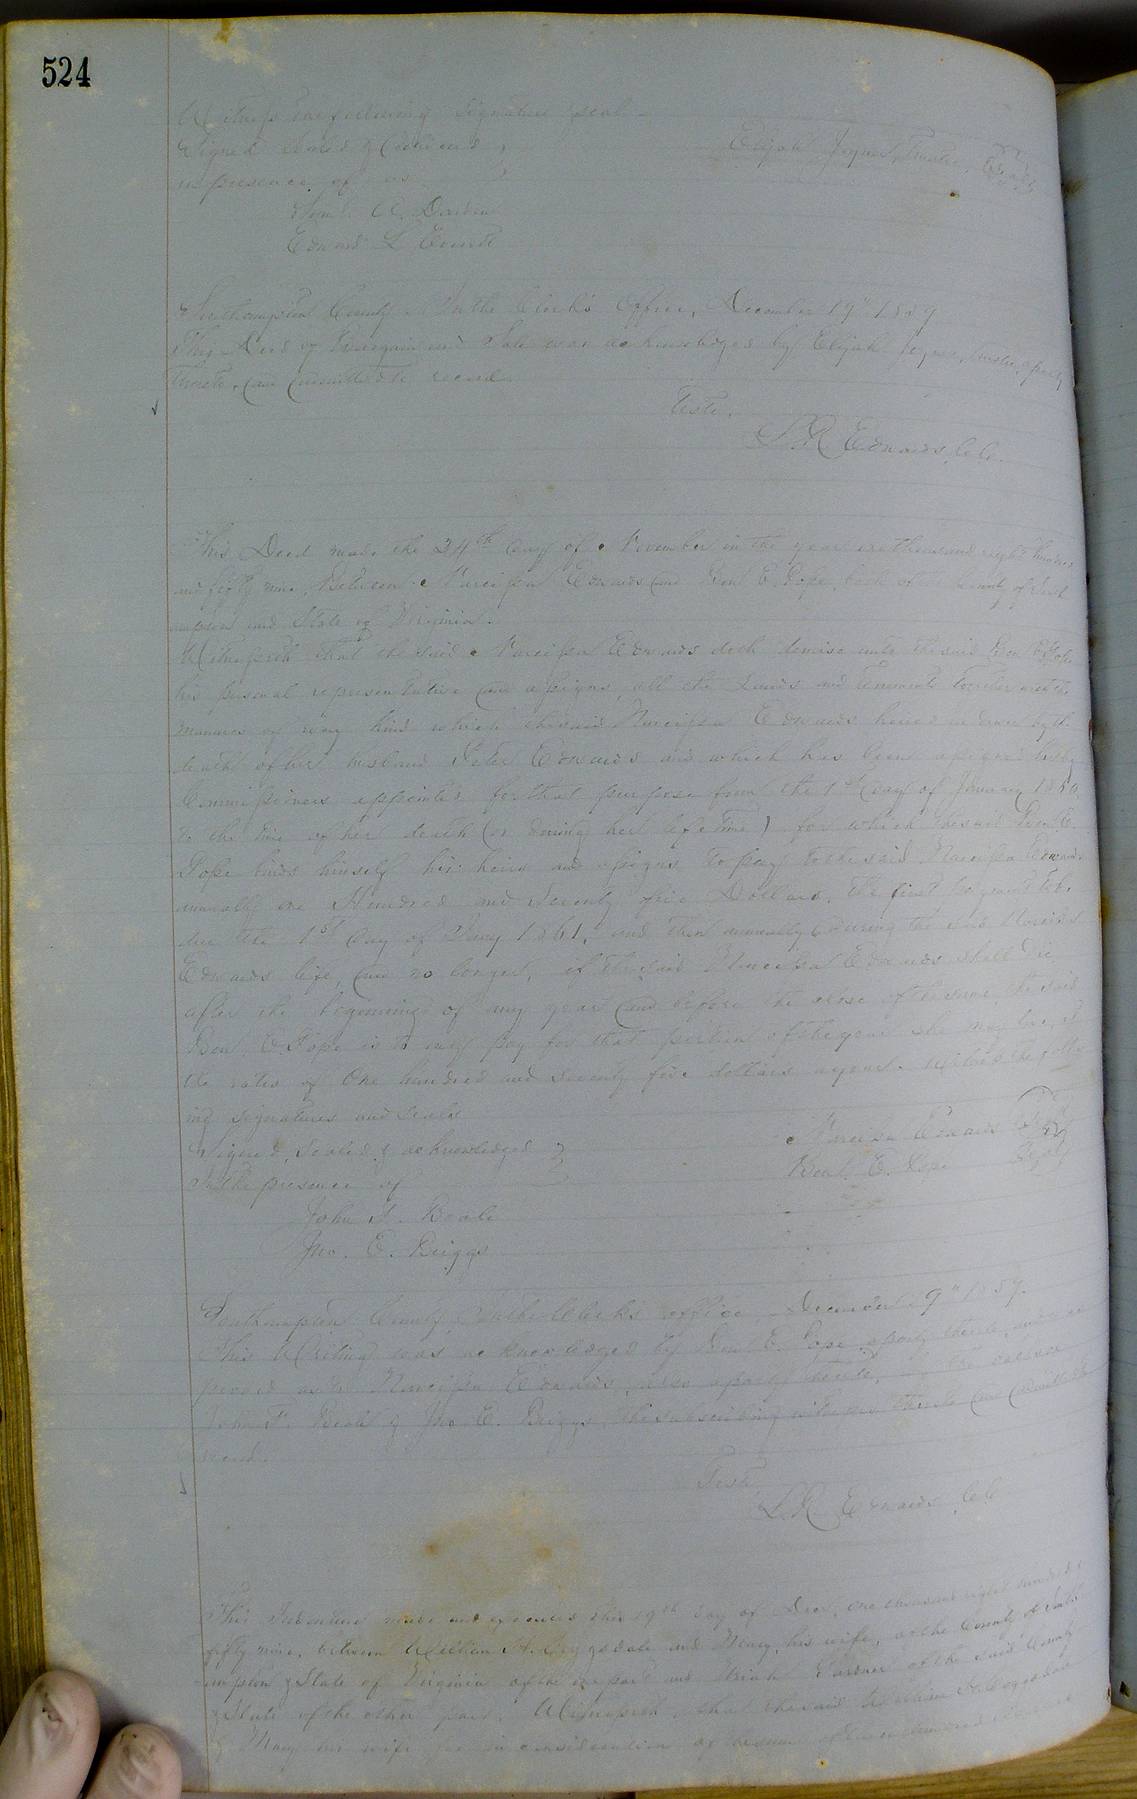 524
Witness the following signature & seal
Signed Sealed & delivered
in presence of us
Elijah Joyner, Trustee, Seal
Saml. A. Darden
Edward L. Everett
Southampton County In the Clerk's Office, December 19th 1859
This Deed of Bargain and Sale was acknowledged by Elijah Joyner, Trustee, a party
thereto, and committed to record
Teste,
L. R. Edwards, C.C.
This Deed made the 24th day of November in the year one thousand eight hundred
and fifty nine, Between Narcissa Edwards and Benl. E. Pope, both of the County of South
ampton and State of Virginia.
Witnesseth that the said Narcissa Edwards doth demise unto the said Benl. E. Pope
his personal representative and assigns, all the Lands and tenements together with the
of every kind which the said Narcissa Edwards holds in dower by the
death of her husband Peter Edwards and which has been assigned her by
Commissioners appointed for that purpose from the 1st day of January 1860
to the time of her death (or during her life time) for which the said Benl. E.
Pope binds himself his heirs and assigns to pay to the said Narcissa Edwards
annually one Hundred and Seventy five Dollars, the first payment to be
due the 1st day of Jany 1861, and then annually during the said Narcissa
Edwards life, and no longer, if the said Narcissa Edwards shall die
after the beginning of any year and before the close of the same, the said
Benl. E. Pope is to only pay for that portion of the year she may live, at
the rates of One hundred and seventy five dollars a year. Witness the follow
ing signatures and seals
Signed, Sealed & acknowledged
In the presence of
Narcissa Edwards Seal
Benl. E. Pope Seal
John F. Beale
Jno. E. Briggs
Southampton County, In the Clerk's office, December 19th 1859.
This Writing was acknowledged by Benl. E. Pope a party thereto, and
proved as to Narcissa Edwards, also a party thereto, by the evidence
John F. Beale & Jno. E. Briggs, the subscribing witnesses thereto and admitted to
record.
Teste,
L. R. Edwards, C.C.
This Indenture made and executed this 19th day of Decr. one thousand eight hundred &
fifty nine, between William H. and Mary his wife, of the County of South
ampton & State of Virginia of the one part and Gardner of the said County
& State of the other part. Witnesseth, that the said William H.
& Mary his wife for in consideration of the sum of